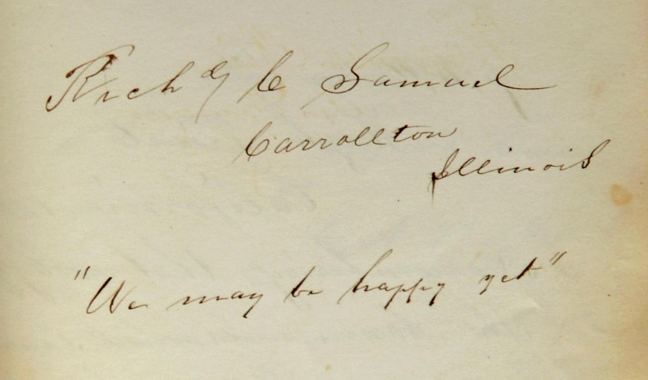 Richd C Samuel
Carrollton
Illinois
"We may be happy yet"